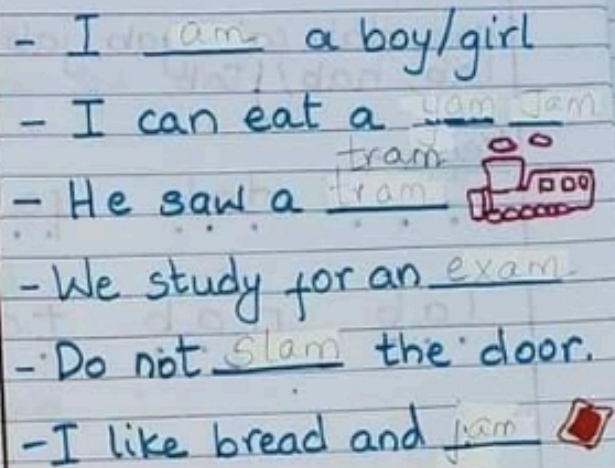 - I am a boy/girl
- I can eat a yam Jam
tram
- He saw a tram
- We study for an exam
- Do not slam the door.
- I like bread and jam